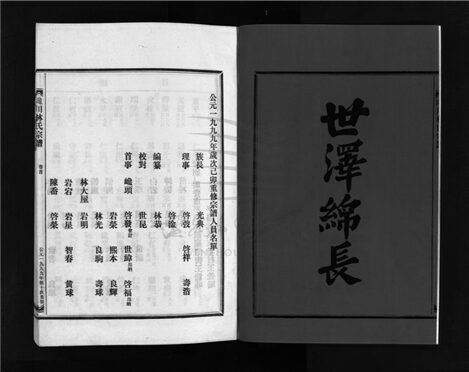 世澤綿長
公元一九九九年歲次己卯重修宗譜人員名單
族長 光典
理事 啓弢 啓祥 壽浩
啓淦
編纂 林恭
校對 世昆
首事 巉頭 啓發 世緯 啓福
岩榮 熙本 良輝
林光 良駒 壽球
林大屋 岩明
岩宕 岩星 智春 黃球
陳喬 啓榮
川林氏宗譜
卷首